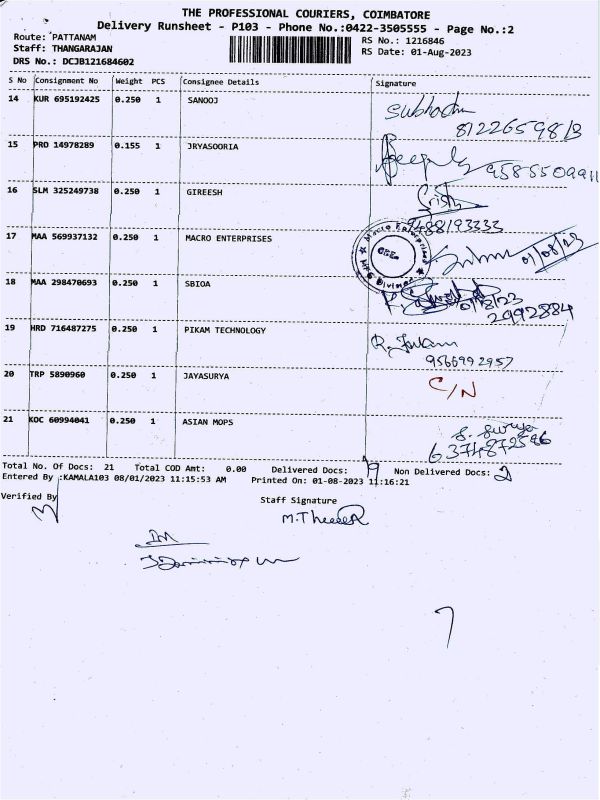 THE PROFESSIONAL COURIERS, COIMBATORE
Delivery Runsheet - P103 - Phone No.:0422-3505555 - Page No.:2
Route: PATTANAM
RS No.: 1216846
Staff: THANGARAJAN
RS Date: 01-Aug-2023
DRS No.: DCJB121684602
S No Consignment No Weight PCS Consignee Details Signature
14 KUR 695192425 0.250 1 SANOOJ
8122659813
15 PRO 14978289 0.155 1 JRYASOORIA
9585509911
16 SLM 325249738 0.250 1 GIREESH
9488193333
17 MAA 569937132 0.250 1 MACRO ENTERPRISES
01/08/23
18 MAA 298470693 0.250 1 SBIOA
01/8/23
2992884
19 HRD 716487275 0.250 1 PIKAM TECHNOLOGY
9566992957
20 TRP 5890960 0.250 1 JAYASURYA C/N
21 KOC 60994041 0.250 1 ASIAN MOPS
S. Surya
Total No. Of Docs: 21 Total COD Amt: 0.00 Delivered Docs: 19 Non Delivered Docs: 2
Entered By :KAMALA103 08/01/2023 11:15:53 AM Printed On: 01-08-2023 11:16:21
Verified By
Staff Signature
7